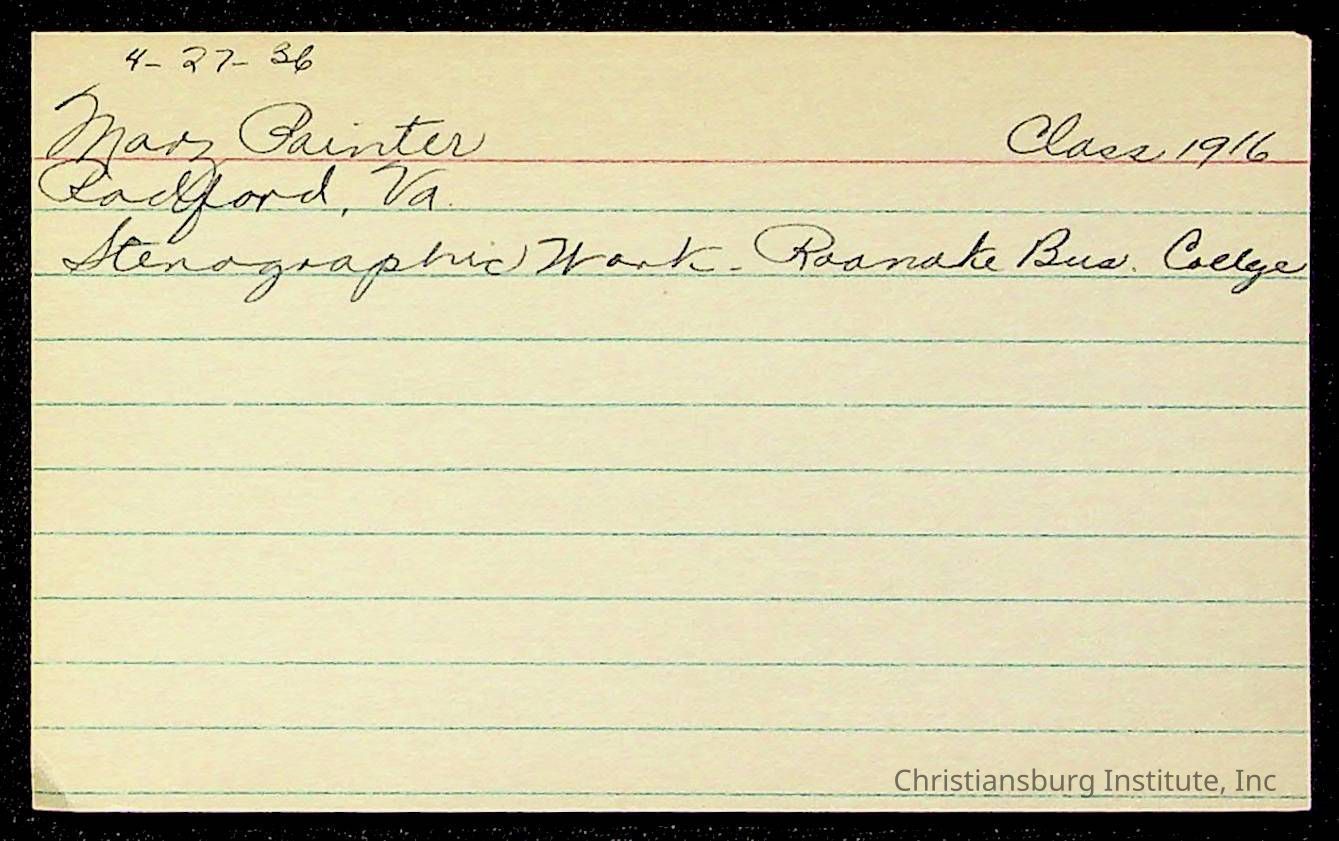 4-27-36
Mary Painter Class 1916
Radford, Va.
Stenographic Work - Roanoke Bus. College
Christiansburg Institute, Inc